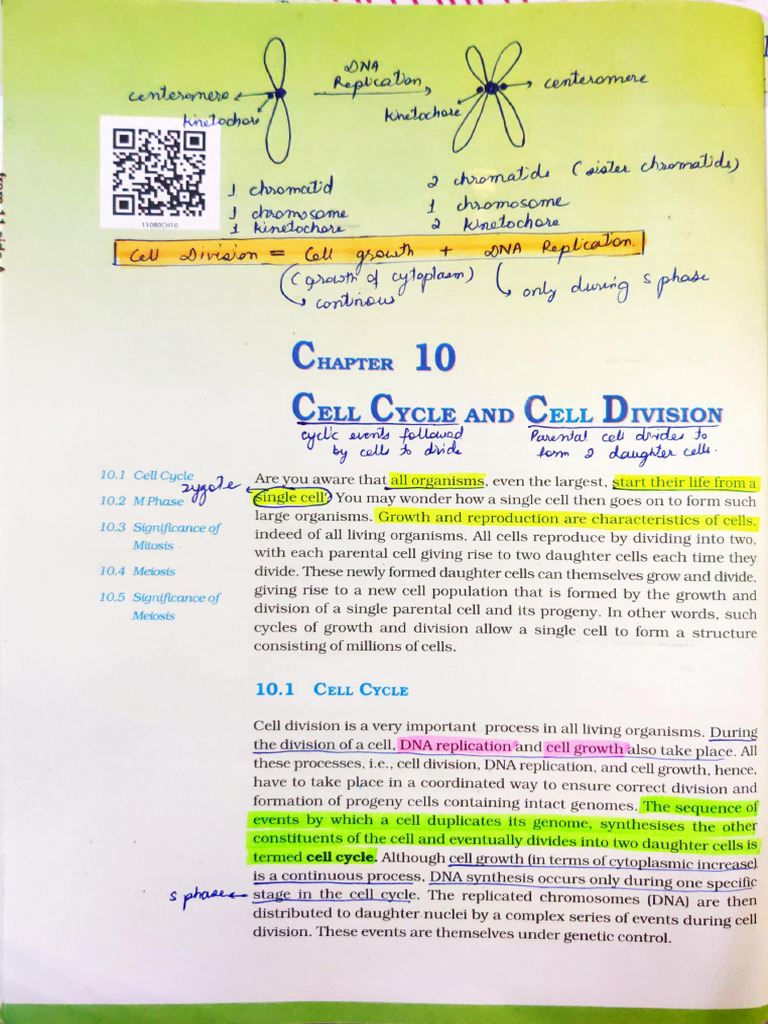 DNA
Replication
centeromere
centeromere
kinetochore
kinetochore
11080CH10
1 chromatid
2 chromatids (sister chromatids)
1 chromosome
1 chromosome
1 kinetochore
2 kinetochore
Cell Division = Cell growth + DNA Replication.
(growth of cytoplasm)
only during S phase
continous
CHAPTER 10
CELL CYCLE AND CELL DIVISION
cyclic events followed
by cells to divide
Parental cell divides to
form 2 daughter cells.
10.1 Cell Cycle
zygote
10.2 M Phase
10.3 Significance of
Mitosis
10.4 Meiosis
10.5 Significance of
Meiosis
Are you aware that all organisms, even the largest, start their life from a
single cell? You may wonder how a single cell then goes on to form such
large organisms. Growth and reproduction are characteristics of cells,
indeed of all living organisms. All cells reproduce by dividing into two,
with each parental cell giving rise to two daughter cells each time they
divide. These newly formed daughter cells can themselves grow and divide,
giving rise to a new cell population that is formed by the growth and
division of a single parental cell and its progeny. In other words, such
cycles of growth and division allow a single cell to form a structure
consisting of millions of cells.
10.1 CELL CYCLE
Cell division is a very important process in all living organisms. During
the division of a cell, DNA replication and cell growth also take place. All
these processes, i.e., cell division, DNA replication, and cell growth, hence,
have to take place in a coordinated way to ensure correct division and
formation of progeny cells containing intact genomes. The sequence of
events by which a cell duplicates its genome, synthesises the other
constituents of the cell and eventually divides into two daughter cells is
termed cell cycle. Although cell growth (in terms of cytoplasmic increase)
is a continuous process, DNA synthesis occurs only during one specific
S phase
stage in the cell cycle. The replicated chromosomes (DNA) are then
distributed to daughter nuclei by a complex series of events during cell
division. These events are themselves under genetic control.